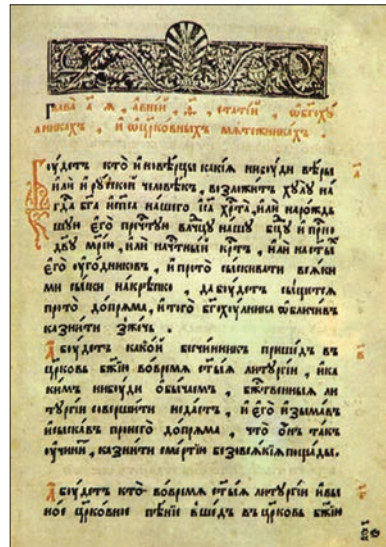 Глава̀ а҃ я, а в ней, ѳ҃, статїй, ѡ бг҃оху
лникахъ, и ѡ цр҃ковныхъ мятежникахъ.
Боу́детъ кто̀ и́новѣрцы какїя нибоуди вѣры а҃
и́ли и́ роу́ской человѣкъ, возложитъ хоулоу на
гд҃а бг҃а и́ сп҃са на́шего і҃са хр҃та̀, и́ли на ро́ждь
шоую его̀ пречⷭ҇тоую влⷣчцоу нашоу бцⷣоу и́ при́но
дв҃оу мр҃і́ю, и́ли на чⷭ҇тны́й крⷭ҇тъ, и́ли на ст҃ы́хъ
его̀ оу́годниковъ, и́ про то̀ сыскивати всѧки
ми сыски накрѣпко, да боу́детъ сыщется
про то̀ допряма, и́ того̀ бг҃охоу́лника ѡбличивъ
казни́ти зже́чь.
А боу́детъ како́й бесчи́нникъ прише́дъ в҃ в
цр҃ковь бж҃їю во время ст҃ы́я литоургі́и, и́ ка
ки́мъ нибоуди ѡбы́чаемъ, бжⷭ҇твенныя ли
тоургі́и соверши́ти не да́стъ, и́ его̀ и́зымавъ
и́ сыска́въ про него̀ допряма, что ѻ́нъ та́къ
оучини́тъ, казни́ти сме́ртїю безо всѧкїя поща́ды.
А боу́детъ кто̀ во время ст҃ы́я литоургі́и и́ в ы г҃
ное цр҃ковное пѣ́нїе вше́дъ въ цр҃ковь бж҃їю